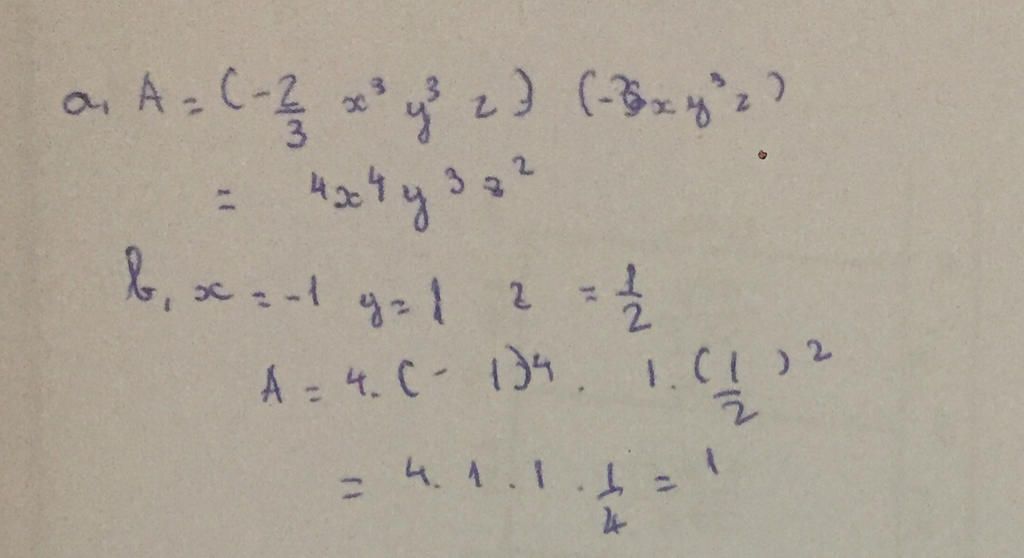 a, A = (-2/3 x³ y³ z) (-6xy³z)
= 4x⁴y³z²
b, x = -1 y = 1 z = 1/2
A = 4. (-1)⁴. 1. (1/2)²
= 4. 1. 1. 1/4 = 1